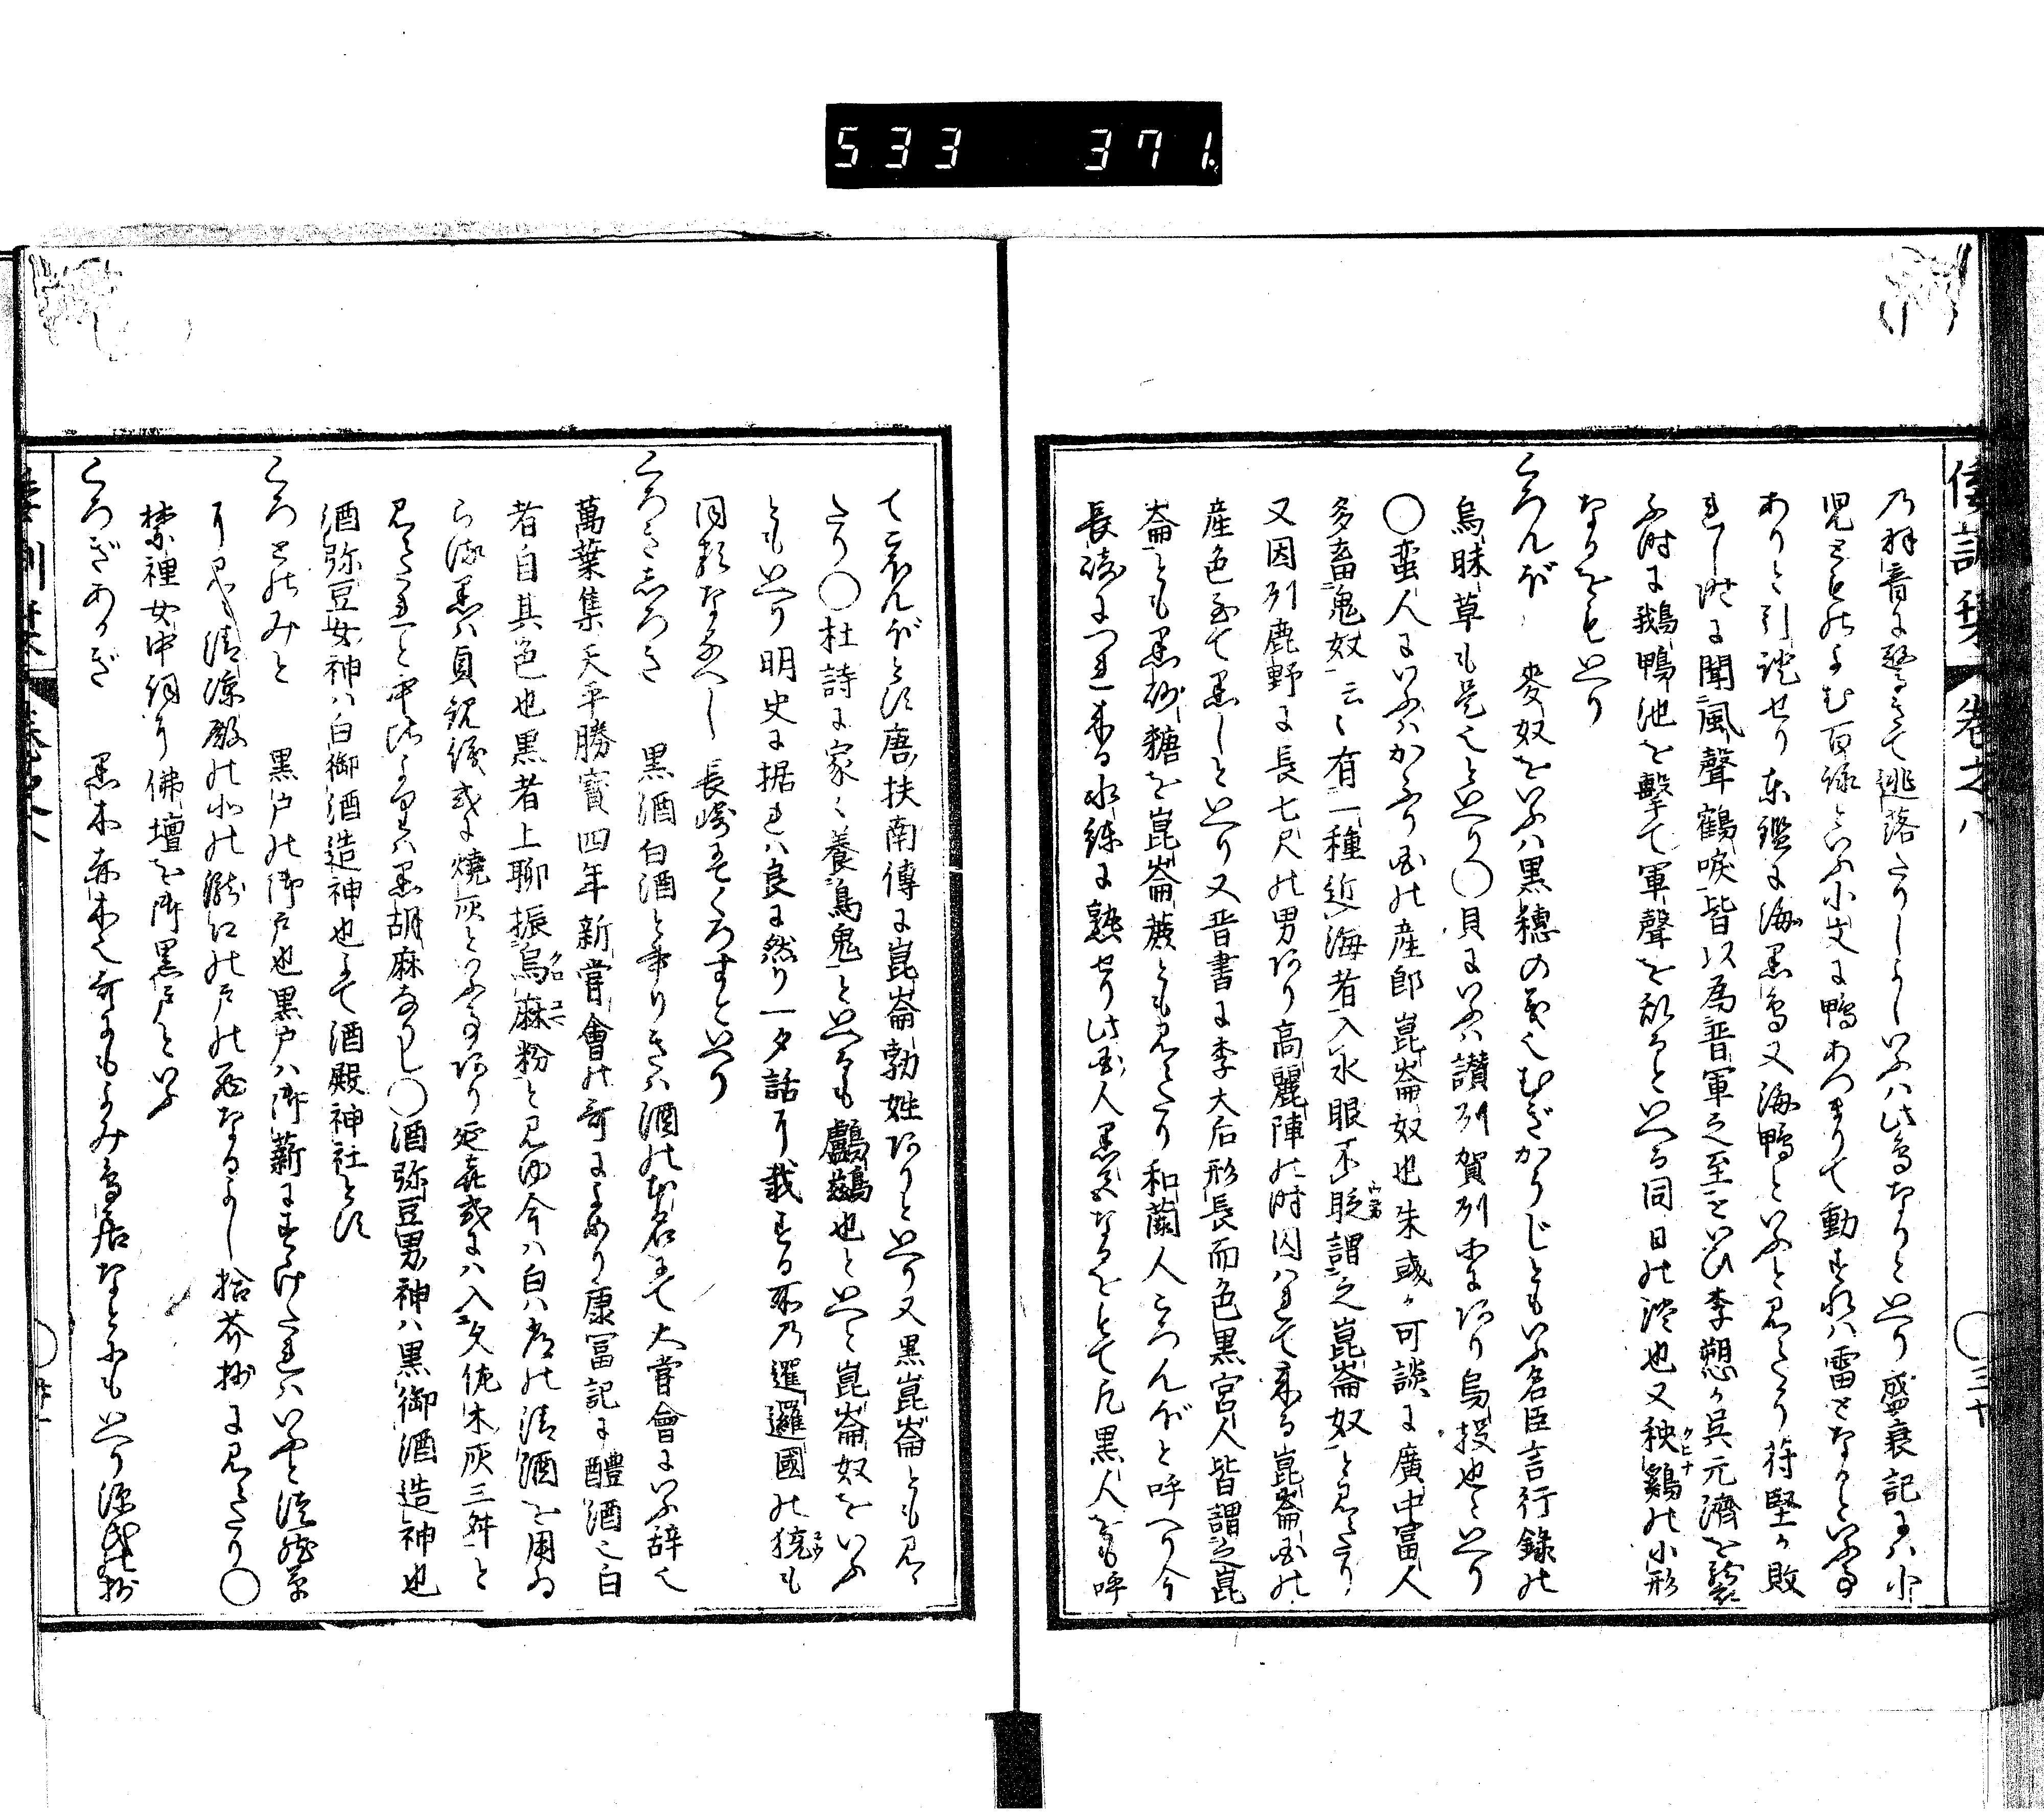 533 371
倭訓栞 卷之八 ○三十
乃羽音に驚きて迯落たりしよしいふハ此鳥なりといへり盛衰記にハ小
児ともよむ 小文に鴨あつまりて動すれハ雷となるといふ事
ありと引證せり東鑑に海黒鳥又海鴨といふと見えたり苻堅か敗
れし時に聞風聲鶴唳皆以為晋軍之至といひ李愬か呉元濟を襲
ふ時に鵝鴨池を擊て軍聲を乱るといへる同日の談也又秧鷄の小形
なるをもいへり
くろんぼ 麥奴をいふハ黒穗の義也むぎかうじともいふ名臣言行錄の
烏昧草も是也といへり○貝にいふハ讃州賀州等にあり烏投也といへり
○蛮人にいふハかふり国の産即崑崙奴也朱彧か可談に廣中富人
多畜鬼奴云々有一種近海者入水眼不眨謂之崑崙奴と見えたり
又因州鹿野に長七尺の男あり高麗陣の時囚ハれて来る崑崙国の
産色至て黒しといへり又晋書に李太后形長而色黒宮人皆謂之崑
崙とも黒砂糖を崑崙蔗とも見えたり和蘭人くろんぼと呼へり今
長崎につれ来る水練に熟せり此国人黒色なるをもて凡黒人をも呼
てくろんぼとす唐扶南傳に崑崙勃姓ありといへり又黒崑崙とも見え
たり○杜詩に家々養烏鬼といへるも鸕鷀也といへと崑崙奴をいふ
ともいへり明史に据れハ良に然り一夕話に載する所乃暹羅國の㺜も
同類なるへし長崎にてくろすといへり
くろきしろき 黒酒白酒と書りきハ酒の古名にて大嘗會にいふ辞也
萬葉集天平勝寶四年新嘗會の哥によめり康冨記に醴酒之白
者自其色也黒者上聊振烏麻粉と見ゆ今ハ白ハ常の清酒を用ゐ
られ黒ハ貞觀儀式に燒灰といふ事あり延喜式にハ入久佐木灰三舛と
見えたれと中比よりハ黒胡麻なりし○酒弥豆男神ハ黒御酒造神也
酒弥豆女神ハ白御酒造神也よて酒殿神社とす
くろとのみと 黒戸の御戸也黒戸ハ御薪にすゝけたれハいふと徒然草
に見ゆ清涼殿の北の瀧口の戸の西なるよし拾芥抄に見えたり○
禁裡女中詞に佛壇を御黒戸といふ
くろぎあかぎ 黒木赤木也哥にもよみ鳥居なとにもいへり源氏抄